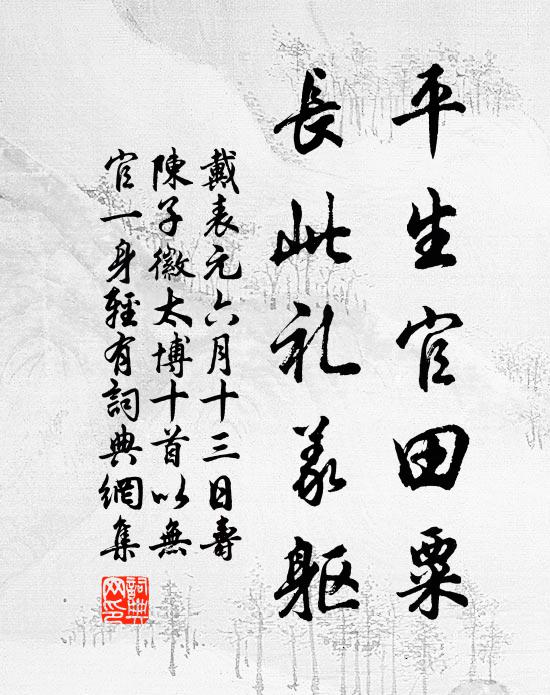 平生官田粟
長此礼義軀
戴表元六月十三日壽
陳子徽太博十首以無
官一身輕有詞典網集